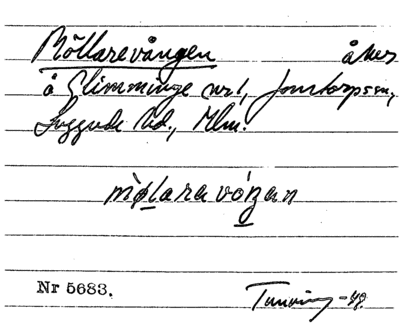 Möllarevången åker
å Glimminge nr 1, Jonstorps sn,
Luggude hd., Mlm.
mølaravóŋan
Nr 5683.
-48.